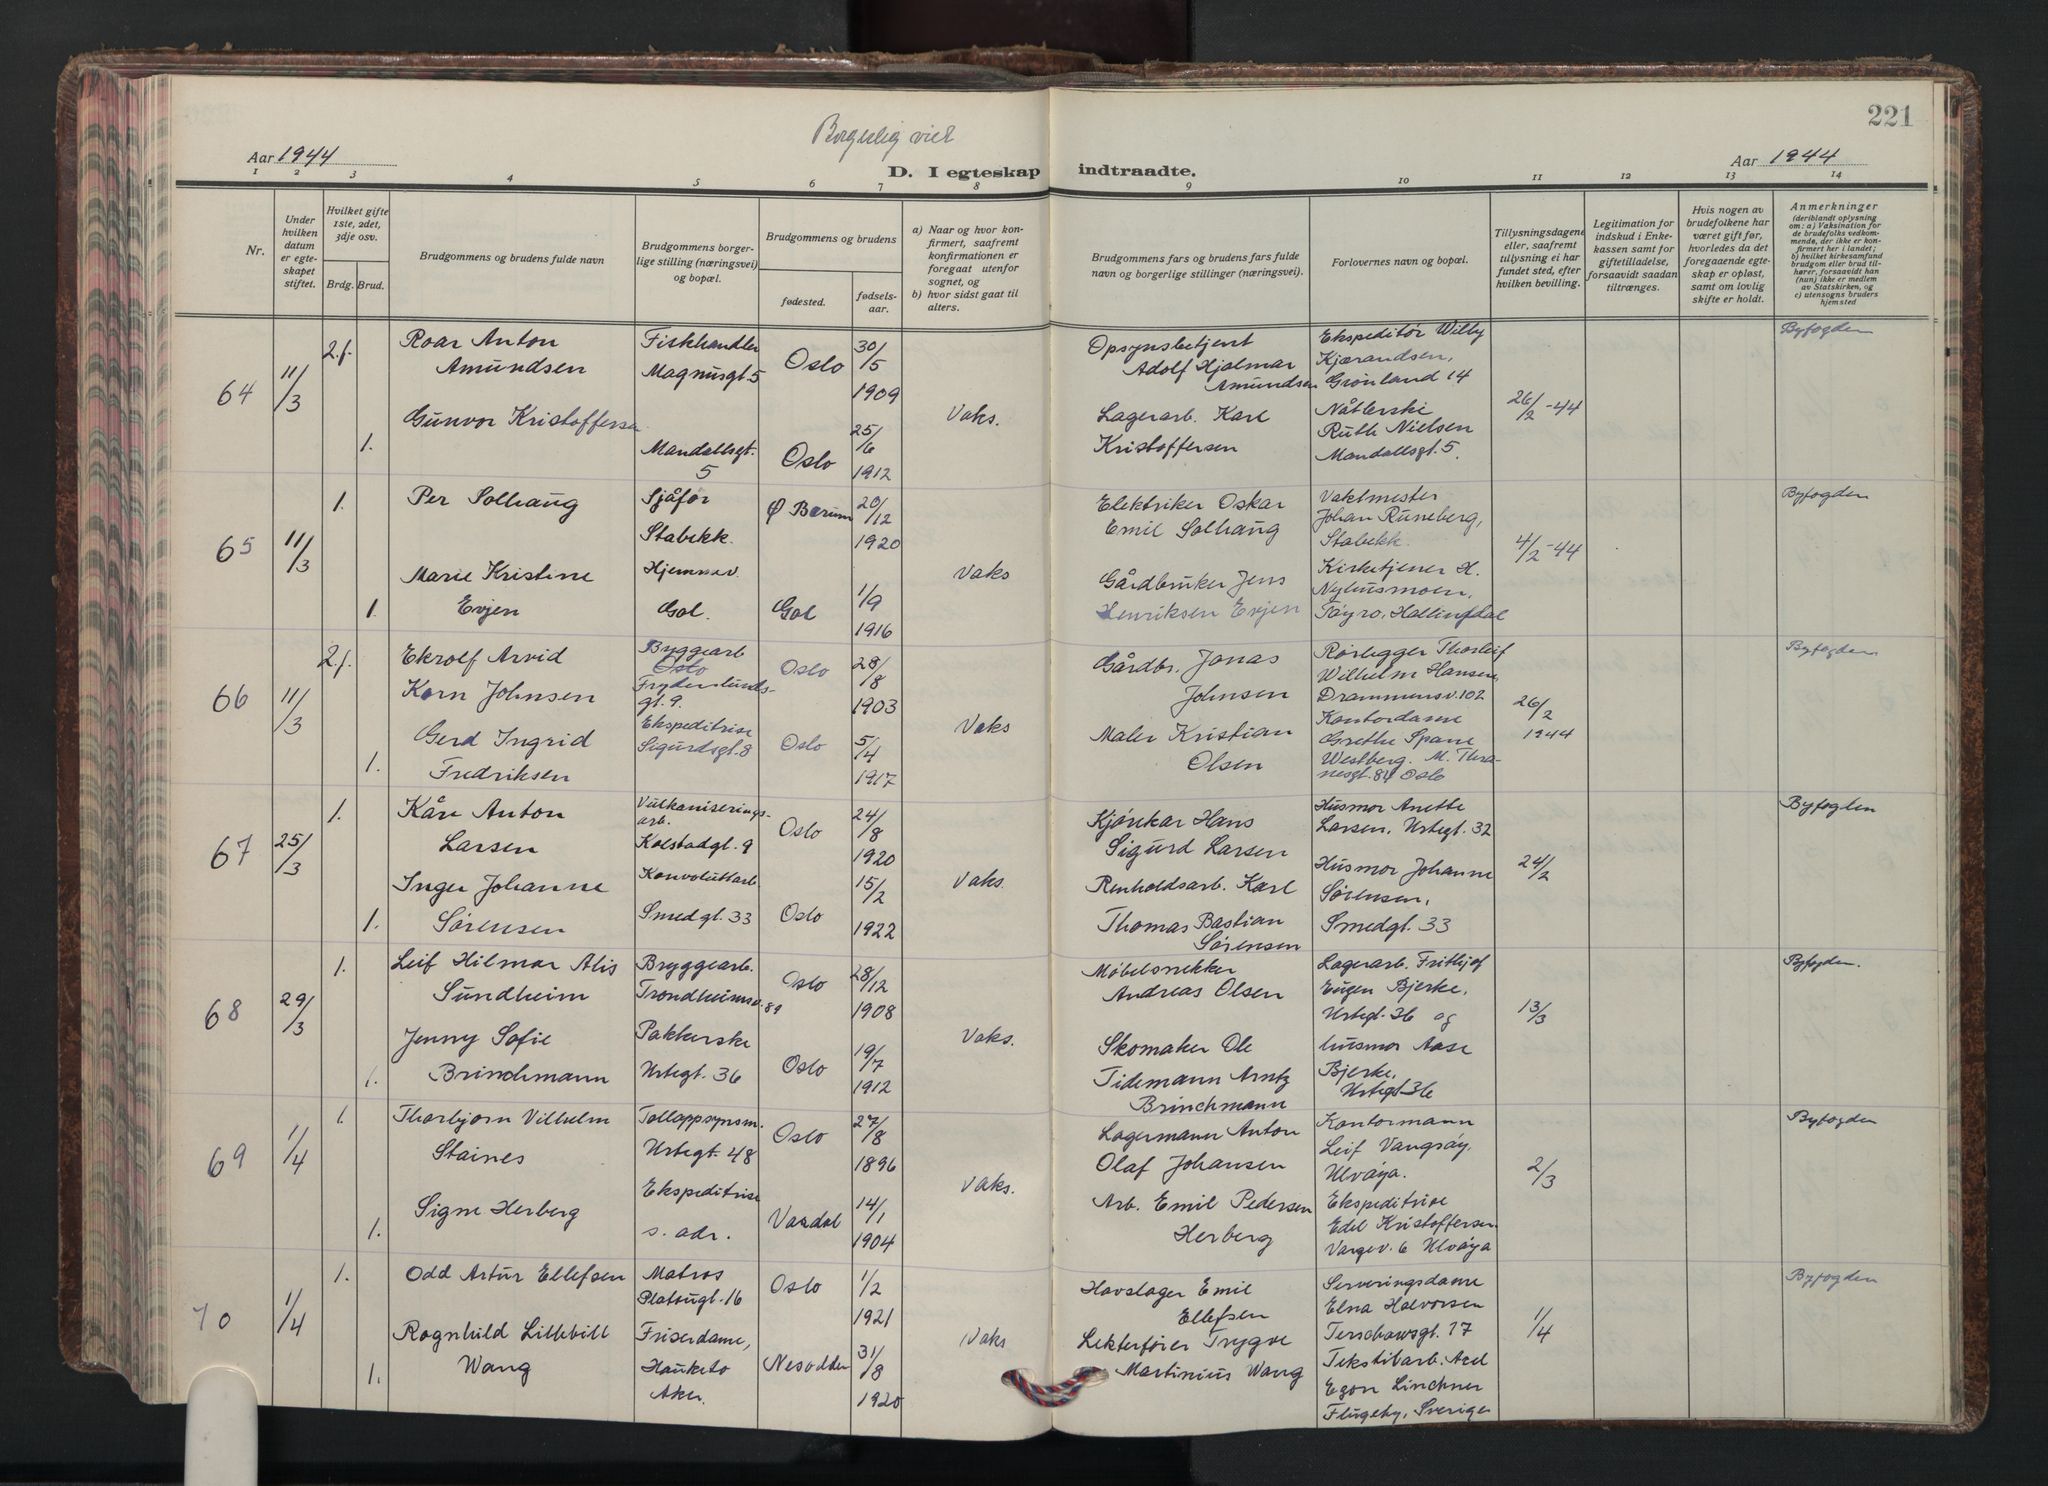 221
Borgerlig viet
Aar 1944
D. I egteskap indtraadte.
Aar 1944
1 2 3 4 5 6 7 8 9 10 11 12 13 14
Nr.
Under hvilken datum er egteskapet stiftet.
Hvilket gifte 1ste, 2det, 3dje osv.
Brdg. Brud.
Brudgommens og brudens fulde navn
Brudgommens borgerlige stilling (næringsvei) og bopæl.
Brudgommens og brudens
fødested.
fødselsaar.
a) Naar og hvor konfirmert, saafremt konfirmationen er foregaat utenfor sognet, og
b) hvor sidst gaat til alters.
Brudgommens fars og brudens fars fulde navn og borgerlige stillinger (næringsvei).
Forlovernes navn og bopæl.
Tillysningsdagene eller, saafremt tillysning ei har fundet sted, efter hvilken bevilling.
Legitimation for indskud i Enkekassen samt for giftetilladelse, forsaavidt saadan tiltrænges.
Hvis nogen av brudefolkene har været gift før, hvorledes da det foregaaende egteskap er opløst, samt om lovlig skifte er holdt.
Anmerkninger
(deriblandt oplysning om: a) Vaksination for de brudefolks vedkommende, der ikke er konfirmert her i landet; b) hvilket kirkesamfund brudgom eller brud tilhører, forsaavidt han (hun) ikke er medlem av Statskirken, og c) utensogns bruders hjemsted
64
11/3
2.f.
Roar Anton
Amundsen
Fiskhandler
Magnusgt. 5
Oslo
30/5
1909
Opsynsbetjent
Adolf Hjalmar
Amundsen
Ekspeditør Willy
Kjærandsen,
Grønland 14
26/2-44
Byfogden
1.
Gunvor Kristoffersen
Mandallsgt.
5
Oslo
25/6
1912
Vaks.
Lagerarb. Karl
Kristoffersen
Nåtlerske
Ruth Nielsen
Mandallsgt. 5.
65
11/3
1.
Per Solhaug
Sjåfør
Stabekk.
Ø Bærum
20/12
1920
Elektriker Oskar
Emil Solhaug
Vaktmester
Johan Runeberg,
Stabekk.
4/2-44
Byfogden
1.
Marie Kristine
Evjen
Hjemmev.
Gol.
Gol
1/9
1916
Vaks
Gårdbruker Jens
Henriksen Evjen
Kirketjener H.
Nyhusmoen,
Hallingdal
66
11/3
2.f.
Ekrolf Arvid
Korn Johnsen
Byggearb
Oslo
Frydenlunds-
gt. 9.
Oslo
28/8
1903
Gårdbr. Jonas
Johnsen
Rørlegger Thorleif
Wilhelm Hansen,
Drammensv. 102
26/2
1944
Byfogden
1.
Gerd Ingrid
Fredriksen
Ekspeditrise
Sigurdsgt. 8
Oslo
5/4
1917
Vaks
Maler Kristian
Olsen
Kontordame
Grethe Spane
Westberg. M. Thra-
nesgt. 84 Oslo
67
25/3
1.
Kåre Anton
Larsen
Vulkaniserings-
arb.
Kolstadgt. 9
Oslo
24/8
1920
Kjørekar Hans
Sigurd Larsen
Husmor Anette
Larsen, Urtegt. 32
24/2
Byfogden
1.
Inger Johanne
Sørensen
Konvoluttarb.
Smedgt. 33
Oslo
15/2
1922
Vaks.
Renholdsarb. Karl
Thomas Bastian
Sørensen
Husmor Johanne
Sørensen,
Smedgt. 33
68
29/3
1.
Leif Hilmar Alis
Sundheim
Bryggearb.
Trondheimsv. 89
Oslo
28/12
1908
Møbelsnekker
Andreas Olsen
Lagerarb. Frithjof
Eugen Bjerke,
Urtegt. 36 og
13/3
Byfogden.
1.
Jenny Sofie
Brinchmann
Pakkerske
Urtegt. 36
Oslo
19/7
1912
Vaks.
Skomaker Ole
Tidemann Arntz
Brinchmann
husmor Aase
Bjerke,
Urtegt. 36
69
1/4
1.
Thorbjørn Vilhelm
Staines
Tolloppsynsm.
Urtegt. 48
Oslo
27/8
1896
Lagermann Anton
Olaf Johansen
Kontormann
Leif Vangsøy,
Ulvøya.
2/3
Byfogden
1.
Signe Herberg
Ekspeditrise
s. adr.
Vardal
14/1
1904
Vaks.
Arb. Emil Pedersen
Herberg
Ekspeditrise
Edel Kristoffersen
Vargev. 6 Ulvøya
70
1/4
1.
Odd Artur Ellefsen
Matros
Platougt. 16
Oslo
1/2
1921
Hovslager Emil
Ellefsen
Serveringsdame
Elna Halvorsen
Terschowsgt. 17
1/4
Byfogden
1.
Ragnhild Lillebill
Wang
Friserdame,
Hauketo
Aker.
Nesodden
31/8
1920
Vaks
Lekterfører Trygve
Martinius Wang
Tekstilarb. Axel
Egon Linchner
Flugeby, Sverige